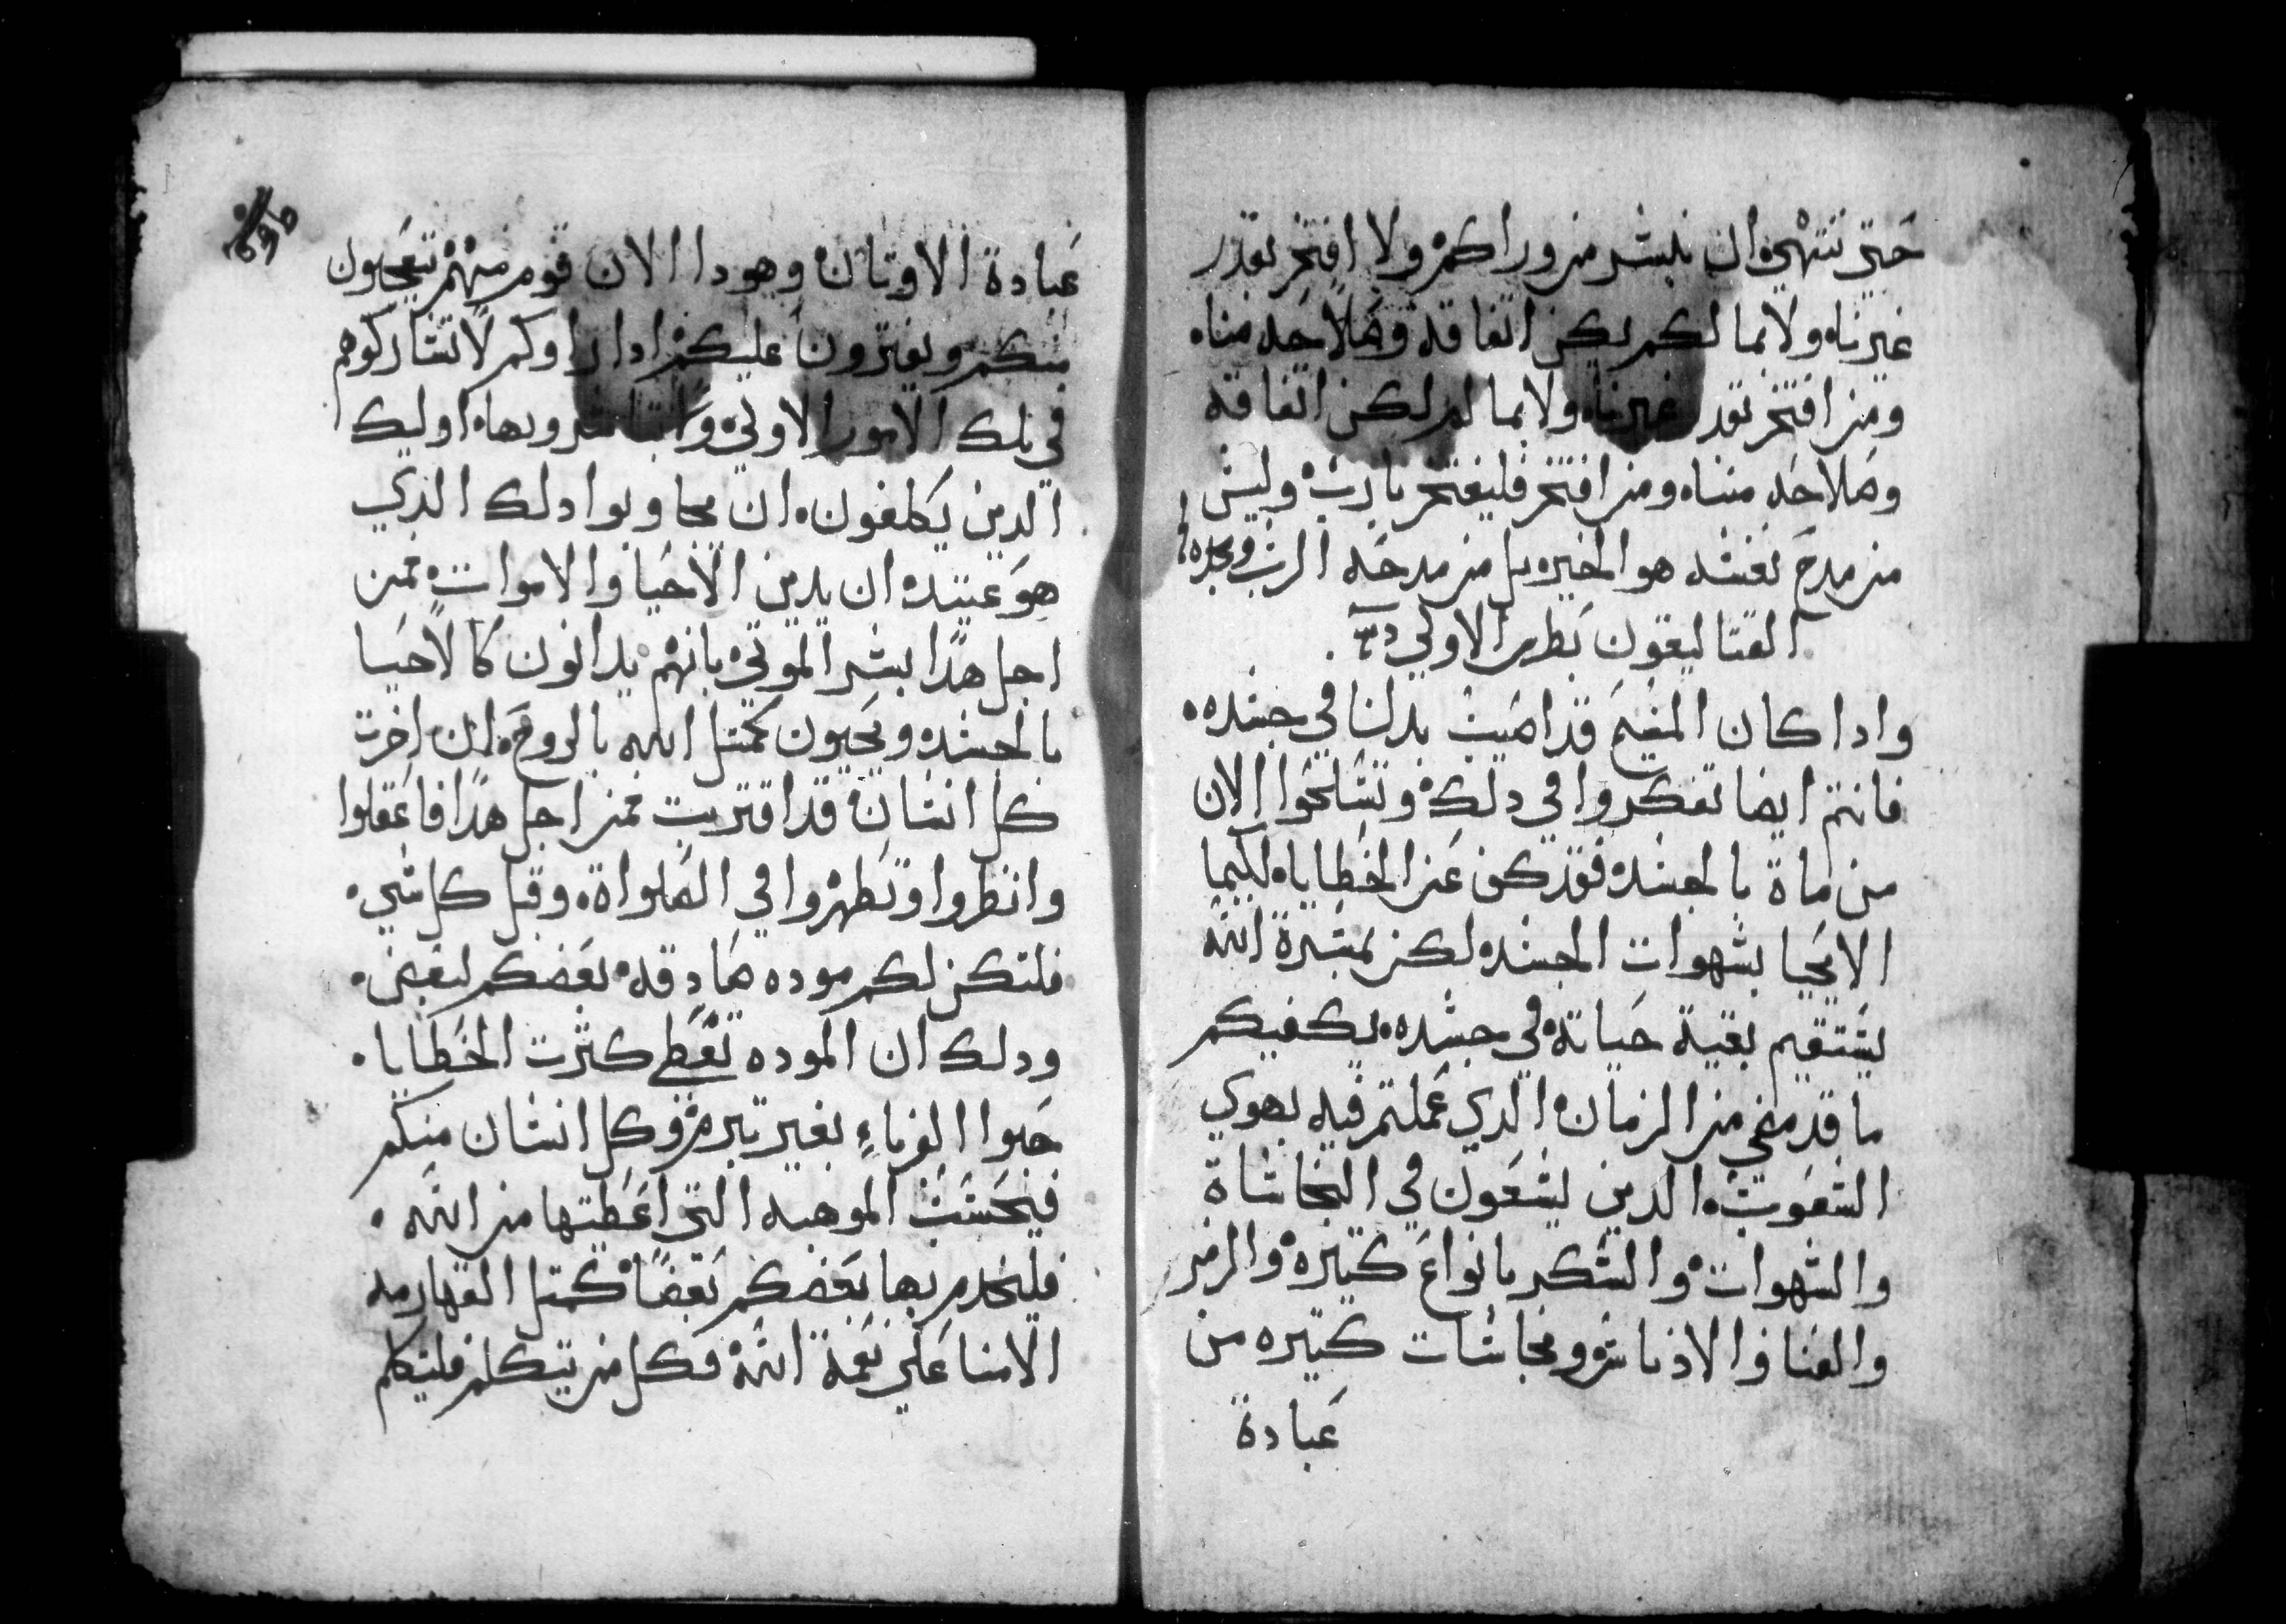 حتي ننتهي ان نبشر من وراكم ولا افتخر بقدر
غيرناه ولا بما لكم يكن اتفاقه وصلاحه مناه
ومن افتخر بقدر غيرناه ولا بما لم لكن اتفاقه
وصلاحه مناه ومن افتخر فليفتخر بارب وليس
من مدح نفسه هو الخير بل من مدحه الرب وحده
القتاليقون بطرس الاولي
وادا كان المسيح قد اصيب بدلنا في جسده
فانتم ايضا تفكروا في دلك وتسلحوا الان
من ماة بالجسده فقد كف عن الخطاياه لكيما
لا يحيا بشهوات الجسده لكن بمسرة الله
يستقيم بقية حياته في جسده يكفيكم
ما قد مضي من الزمان الدي عملتم فيه بهوي
الشعوب الدين يسعون في النجاساة
والشهوات والسكر بانواع كتيره والزمر
والغنا والادناس ونجاسات كتيره من
عبادة
عبادة الاوتان وهودا الان قوم منهم يتعجبون
منكم ويفترون عليكم ادا راوكم لا تشاركوهم
في تلك الامور الاولي اوليك
الدين يكلفون ان يجاوبوا دلك الدي
هو عتيده ان يدين الاحيا والاموات فمن
اجل هدا بشر الموتي بانهم يدانون كالاحيا
بالجسده ويحيون كمتل الله بالروح لان اخرت
كل انسان قد اقتربت فمن اجل هدا فاعقلوا
وانظروا وتطهروا في الصلواة وقبل كل شي
فلتكن لكم موده صادقه بعضكم لبعض
ودلك ان الموده تغطي كثرت الخطايا
حبوا الغرباء بغير تبرم وكل انسان منكم
فبحسب الموهبه التي اعطيتها من الله
فليخدم بها بعضكم بعضا كمتل القهارمه
الامنا علي نعمة الله فكل من يتكلم فليتكلم